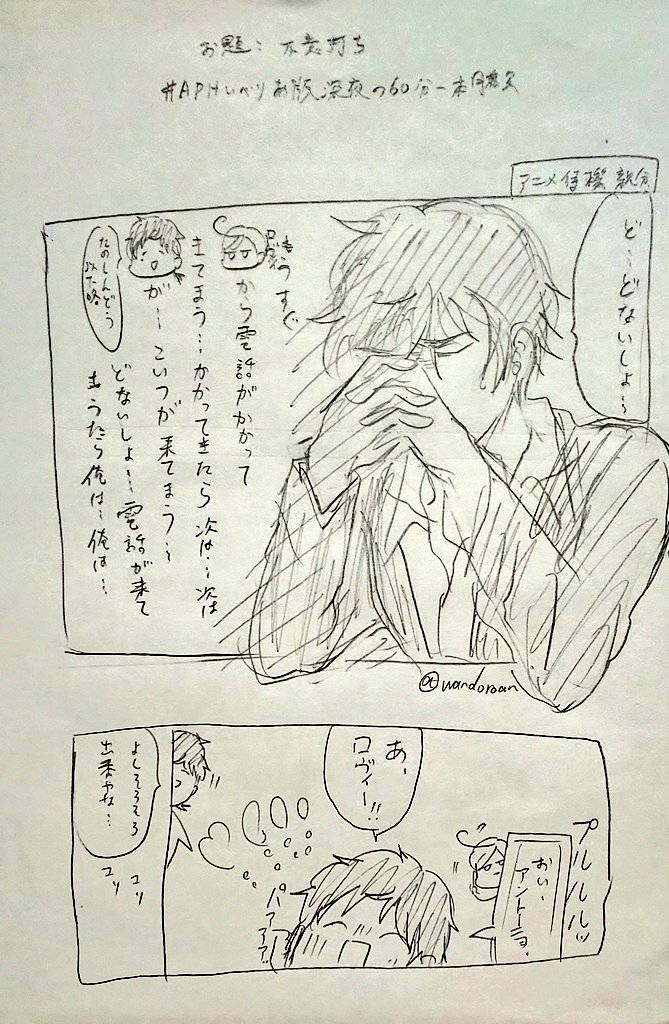 お題：不意打ち
#APHいべりあ版深夜の60分一本勝負
アニメ待機 親分
ど…どないしよ…
もうすぐ
から電話がかかって
きてまう…かかってきたら次は…次は
が…こいつが来てまう…
どないしよ…電話が来て
もうたら俺は…俺は…
たのしんどう
@wandoroan
プルルルッ
おい、
アントーニョ、
あ、
ロヴィー!!
パアアア
よしそろそろ
出番やな…
コソ
コソ